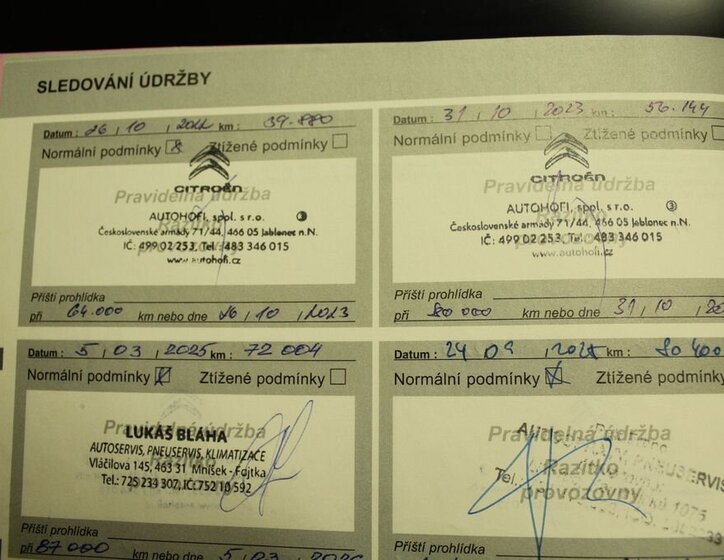 SLEDOVÁNÍ ÚDRŽBY
Datum : 26 , 10 , 2022 km : 39.880
Normální podmínky Ztížené podmínky
CITROËN
Pravidelná údržba
AUTOHOFI, spol. s r.o. 3
Československé armády 71/44, 466 05 Jablonec n.N.
IČ: 499 02 253, Tel.: 483 346 015
www.autohofi.cz
Razítko
provozovny
Příští prohlídka
při 64.000 km nebo dne 26 , 10 , 2023
Datum : 31 , 10 , 2023 km : 56.144
Normální podmínky Ztížené podmínky
CITROËN
Pravidelná údržba
AUTOHOFI, spol. s r.o. 3
Československé armády 71/44, 466 05 Jablonec n.N.
IČ: 499 02 253, Tel.: 483 346 015
www.autohofi.cz
Razítko
provozovny
Příští prohlídka
při 80 000 km nebo dne 31 , 10 , 20
Datum : 5 , 03 , 2025 km : 72 004
Normální podmínky Ztížené podmínky
Pravidelná údržba
LUKÁŠ BLÁHA
AUTOSERVIS, PNEUSERVIS, KLIMATIZACE
Vláčilova 145, 463 31 Mníšek - Fojtka
Tel.: 725 234 307, IČ: 752 10 592
Razítko
Příští prohlídka
při 87 000 km nebo dne 5 , 03 , 2026
Datum : 24 09 , 2025 km : 80 400
Normální podmínky Ztížené podmínky
Pravidelná údržba
PNEUSERVIS
Razítko
Tel.
provozovny
1075
Příští prohlídka
při km nebo dne